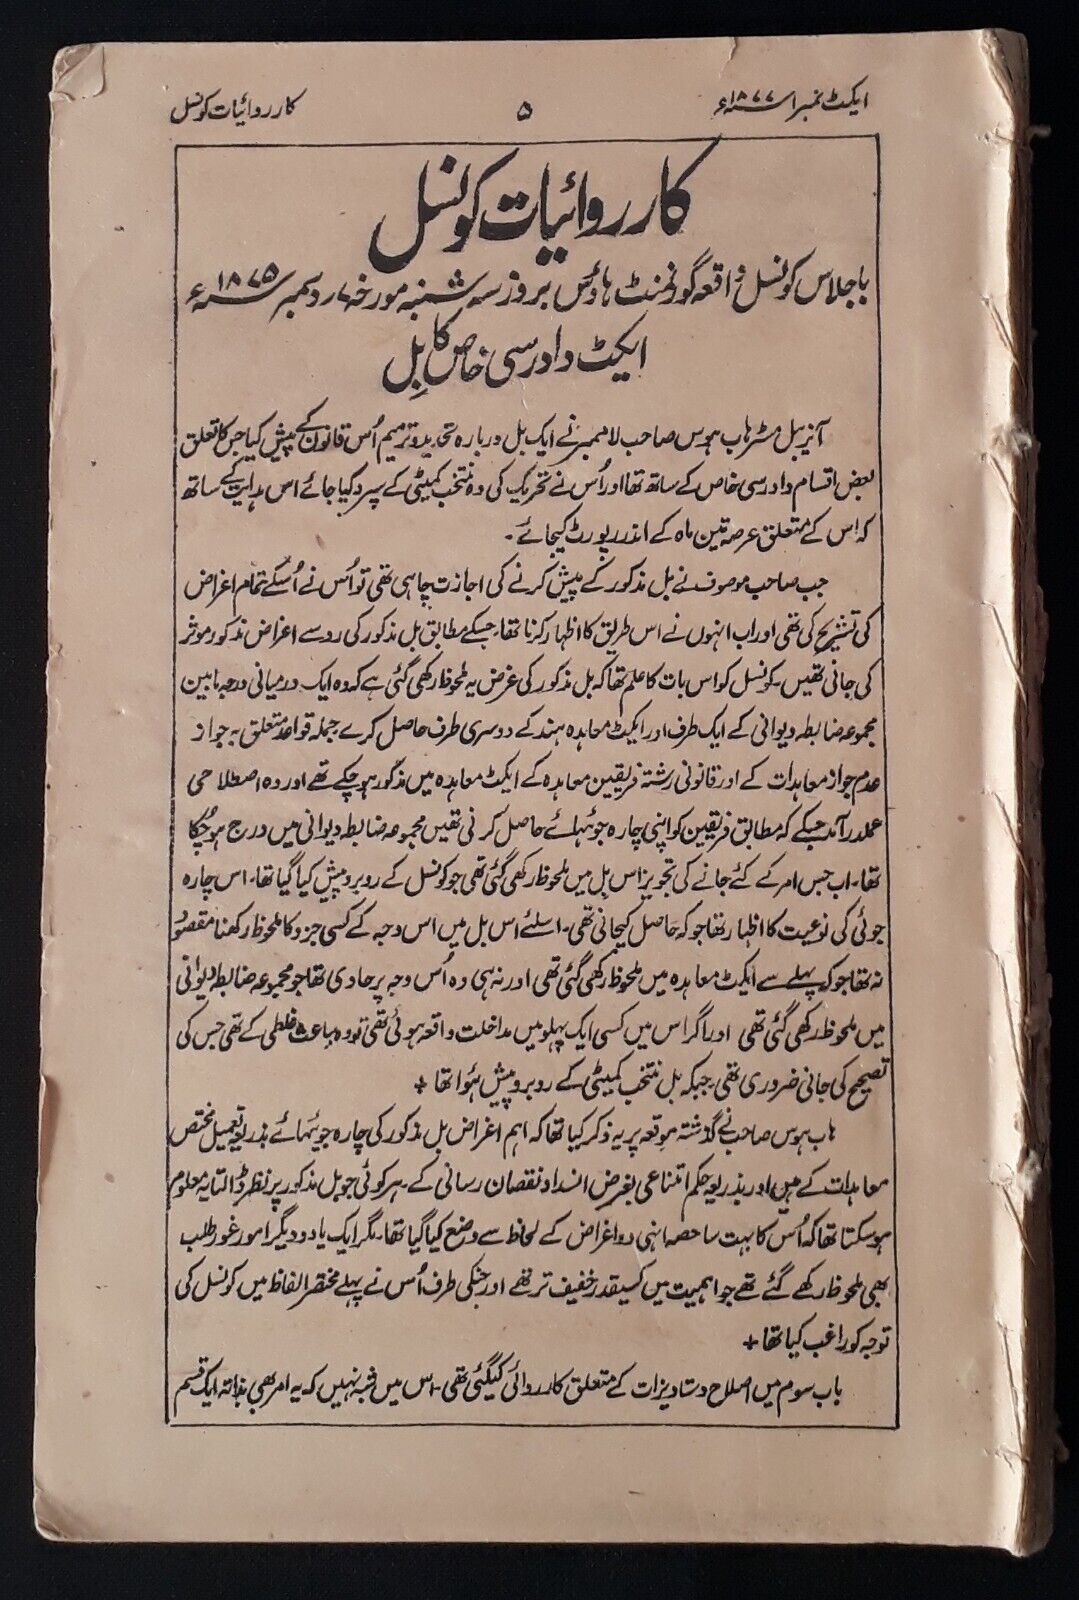 ایکٹ نمبر ۱ ۱۸۷۷ء
۵
کارروائیات کونسل
کارروائیات کونسل
باجلاس کونسل واقعہ گورنمنٹ ہاؤس بروز سہ شنبہ مورخہ ۷ دسمبر ۱۸۷۵ء
ایکٹ دادرسی خاص کا بِل
آنریبل مسٹر ہاب ہوس صاحب لا ممبر نے ایک بل دربارہ تحدید و ترمیم اُس قانون کے پیش کیا جس کا تعلق
بعض اقسام دادرسی خاص کے ساتھ تھا اور اُس نے تحریک کی کہ وہ منتخب کمیٹی کے سپرد کیا جائے اس ہدایت کے ساتھ
کہ اس کے متعلق عرصہ تین ماہ کے اندر رپورٹ کیجائے۔
جب صاحب موصوف نے بل مذکور کے پیش کرنے کی اجازت چاہی تھی تو اُس نے اُسکے تمام اغراض
کی تشریح کی تھی اور اب انہوں نے اس طریق کا اظہار کرنا تھا۔ جسکے مطابق بل مذکور کی رو سے اغراض مذکور موثر
کی جانی تھیں۔ کونسل کو اس بات کا علم تھا کہ بل مذکور کی غرض یہ ملحوظ رکھی گئی ہے کہ وہ ایک درمیانی درجہ مابین
مجموعہ ضابطہ دیوانی کے ایک طرف اور ایکٹ معاہدہ ہند کے دوسری طرف حاصل کرے جملہ قواعد متعلق بہ جواز
عدم جواز معاہدات کے اور قانونی رشتہ فریقین معاہدہ کے ایکٹ معاہدہ میں مذکور ہو چکے تھے اور وہ اصطلاحی
عملدرآمد جسکے کہ مطابق فریقین کو اپنی چارہ جوئیہائے حاصل کرنی تھیں مجموعہ ضابطہ دیوانی میں درج ہو چُکا
تھا۔ اب جس امر کے کئے جانے کی تجویز اس بِل میں ملحوظ رکھی گئی تھی جو کونسل کے روبرو پیش کیا گیا تھا۔ اس چارہ
جوئی کی نوعیت کا اظہار تھا جو کہ حاصل کیجانی تھی۔ اسلئے اس بل میں اس وجہ کے کسی جزو کا ملحوظ رکھنا مقصود
نہ تھا جو کہ پہلے سے ایکٹ معاہدہ میں ملحوظ رکھی گئی تھی اور نہ ہی وہ اُس وجہ پر حاوی تھا جو مجموعہ ضابطہ دیوانی
میں ملحوظ رکھی گئی تھی اور اگر اس میں کسی ایک پہلو میں مداخلت واقعہ ہوئی تھی تو وہ بباعث غلطی کے تھی جس کی
تصحیح کی جانی ضروری تھی جبکہ بل منتخب کمیٹی کے روبرو پیش ہُوا تھا +
ہاب ہوس صاحب نے گذشتہ موقعہ پر یہ ذکر کیا تھا کہ اہم اغراض بل مذکور کی چارہ جوئیہائے بذریعہ تعمیل مختص
معاہدات کے ہیں اور بذریعہ حکم امتناعی بغرض انسداد نقصان رسانی کے۔ ہر کوئی جو بل مذکور پر نظر ڈالتا یہ معلوم
ہو سکتا تھا کہ اُس کا بہت سا حصہ انہی دو اغراض کے لحاظ سے وضع کیا گیا تھا۔ مگر ایک یا دو دیگر امور غور طلب
بھی ملحوظ رکھے گئے تھے جو اہمیت میں کسیقدر خفیف تر تھے اور جنکی طرف اُس نے پہلے مختصر الفاظ میں کونسل کی
توجہ کو راغب کیا تھا +
باب سوم میں اصلاح دستاویزات کے متعلق کارروائی کیگئی تھی۔ اس میں شبہ نہیں کہ یہ امر بھی بذاتہ ایک قسم